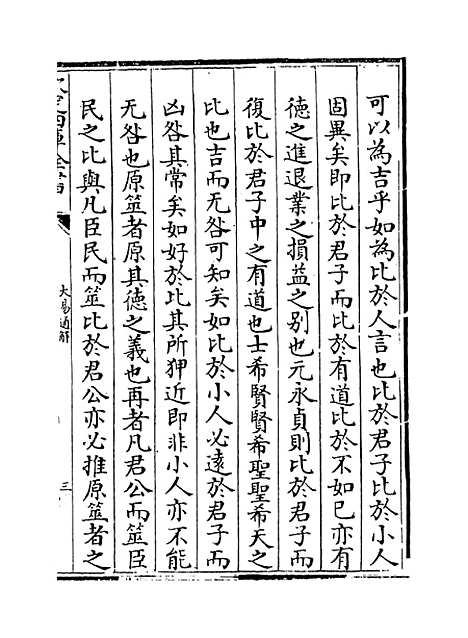 可以為吉乎如為比於人言也比於君子比於小人
固異矣即比於君子而比於有道比於不如已亦有
徳之進退業之損益之别也元永貞則比於君子而
復比於君子中之有道也士希賢賢希聖聖希天之
比也吉而无咎可知矣如比於小人必遠於君子而
凶咎其常矣如好於比其所狎近即非小人亦不能
无咎也原筮者原其徳之義也再者凡君公而筮臣
民之比與凡臣民而筮比於君公亦必推原筮者之
欽定四庫全書
大易通解
三